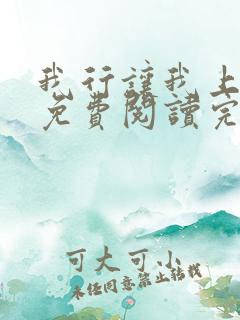 我行讓我上
免費閱讀完
可大可小
未经同意禁止转载